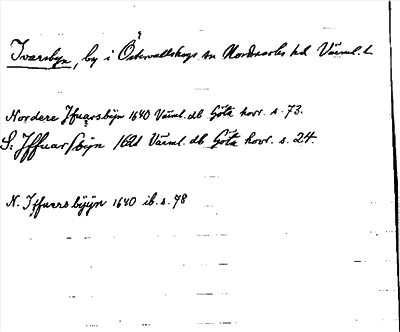 Ivarsbyn, by i Östervallskogs sn Nordmarks hd Värml. l.
Nordere Jfuarsbÿn 1640 Värml. db Göta hovr. s. 73.
S: Jffuarsbÿn 1621 Värml. db Göta hovr. s. 24.
N. Iffuers bÿÿn 1640 ib. s. 78